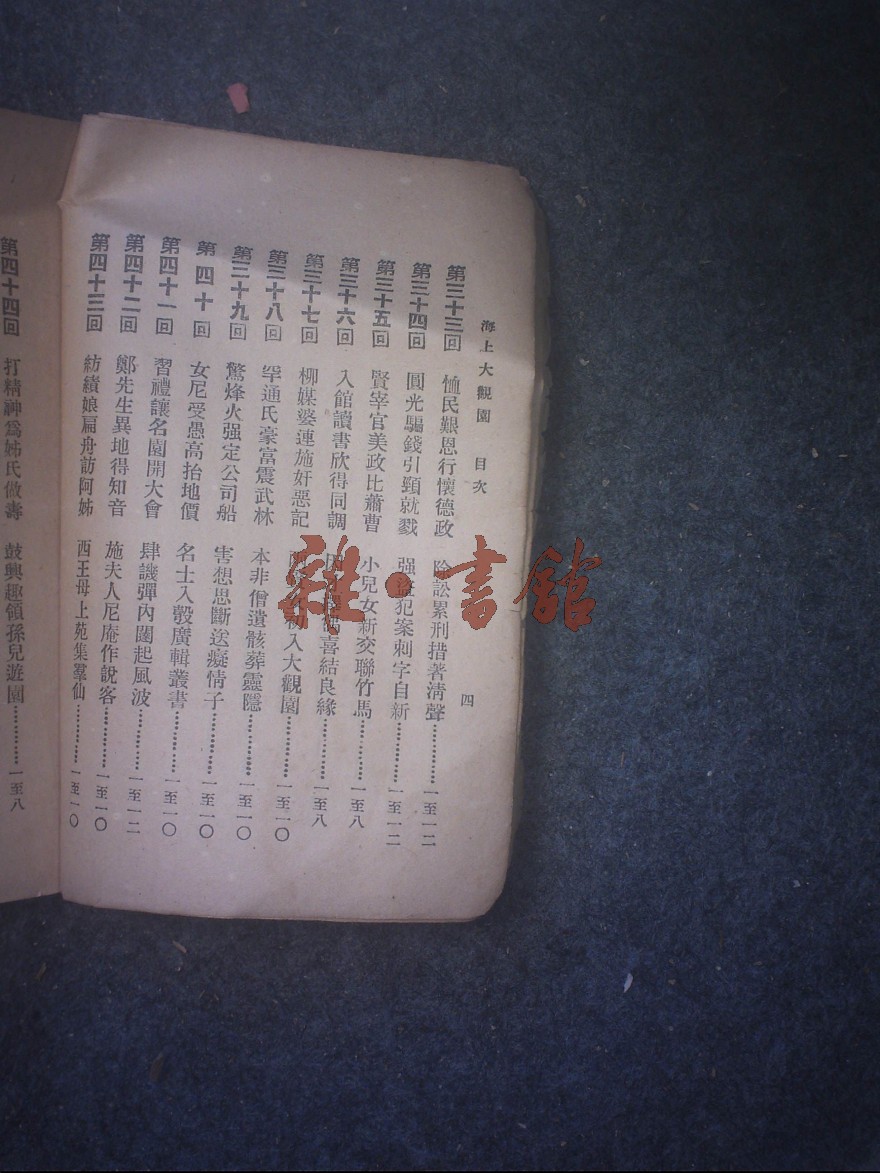 海上大觀園 目次 四
第三十三回 恤民艱恩行懷德政 除訟累刑措著清聲…………一至一二
第三十四回 圓光騙錢引頸就戮 强盜犯案刺字自新…………一至一二
第三十五回 賢宰官美政比蕭曹 小兒女新交聯竹馬…………一至八
第三十六回 入館讀書欣得同調 喜結良緣…………一至八
第三十七回 柳媒婆連施奸惡記 入大觀園…………一至一〇
第三十八回 罕通氏豪富震武林 本非僧遺骸葬靈隱…………一至一〇
第三十九回 驚烽火强定公司船 害想思斷送癡情子…………一至一〇
第四十回 女尼受愚高抬地價 名士入彀廣輯叢書…………一至一〇
第四十一回 習禮讓名園開大會 肆譏彈內閫起風波…………一至一二
第四十二回 鄭先生異地得知音 施夫人尼庵作說客…………一至一〇
第四十三回 紡績娘扁舟訪阿姊 西王母上苑集羣仙…………一至一〇
第四十四回 打精神爲姊氏做壽 鼓興趣領孫兒遊園…………一至八
雜·書館